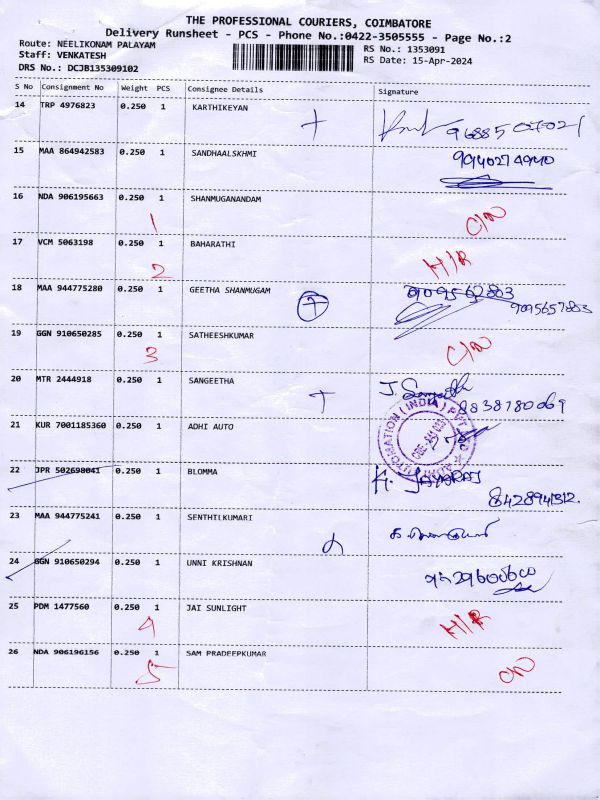 THE PROFESSIONAL COURIERS, COIMBATORE
Delivery Runsheet - PCS - Phone No.:0422-3505555 - Page No.:2
Route: NEELIKONAM PALAYAM
Staff: VENKATESH
DRS No.: DCJB135309102
RS No.: 1353091
RS Date: 15-Apr-2024
S No Consignment No Weight PCS Consignee Details Signature
14 TRP 4976823 0.250 1 KARTHIKEYAN
15 MAA 864942583 0.250 1 SANDHAALSKHMI 9940274940
16 NDA 906195663 0.250 1 SHANMUGANANDAM
1 C/N
17 VCM 5063198 0.250 1 BAHARATHI
2 H/R
18 MAA 944775280 0.250 1 GEETHA SHANMUGAM
9095657803
19 GGN 910650285 0.250 1 SATHEESHKUMAR
3 C/N
20 MTR 2444918 0.250 1 SANGEETHA
8838780069
21 KUR 7001185360 0.250 1 ADHI AUTO
22 JPR 502698041 0.250 1 BLOMMA K. JAYARAJ
23 MAA 944775241 0.250 1 SENTHTLKUMARI
24 GGN 910650294 0.250 1 UNNI KRISHNAN
25 PDM 1477560 0.250 1 JAI SUNLIGHT
4 H/R
26 NDA 906196156 0.250 1 SAM PRADEEPKUMAR
5